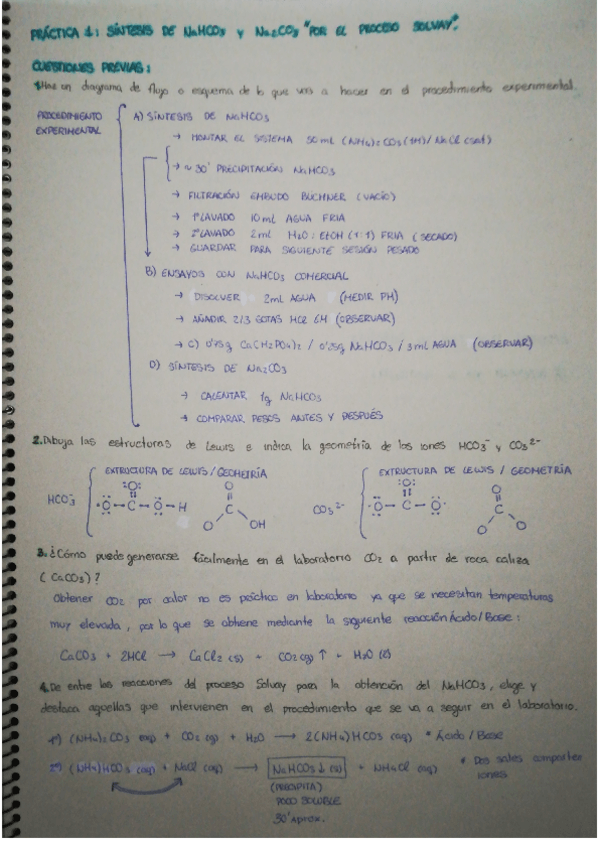 PRÁCTICA 1: SÍNTESIS DE NaHCO3 y Na2CO3 "POR EL PROCESO SOLVAY".
CUESTIONES PREVIAS:
1. Haz un diagrama de flujo o esquema de lo que vas a hacer en el procedimiento experimental.
PROCEDIMIENTO EXPERIMENTAL
A) SÍNTESIS DE NaHCO3
→ MONTAR EL SISTEMA 50 mL (NH4)2CO3 (1M) / NaCl (sat)
→ ~ 30' PRECIPITACIÓN NaHCO3
→ FILTRACIÓN EMBUDO BÜCHNER (VACÍO)
→ 1º LAVADO 10 mL AGUA FRIA
→ 2º LAVADO 2 mL H2O : EtOH (1:1) FRIA (SECADO)
→ GUARDAR PARA SIGUIENTE SESIÓN PESADO
B) ENSAYOS CON NaHCO3 COMERCIAL
→ DISOLVER 2mL AGUA (MEDIR PH)
→ AÑADIR 2/3 GOTAS HCl 6M (OBSERVAR)
→ C) 0'75g Ca(H2PO4)2 / 0'35g NaHCO3 / 3mL AGUA (OBSERVAR)
D) SÍNTESIS DE Na2CO3
→ CALENTAR 1g NaHCO3
→ COMPARAR PESOS ANTES Y DESPUÉS
2. Dibuja las estructuras de Lewis e indica la geometría de los iones HCO3- y CO3 2-
HCO3- EXTRUCTURA DE LEWIS / GEOMETRÍA CO3 2- EXTRUCTURA DE LEWIS / GEOMETRÍA
:O: O :O: O
·O – C – O – H C ·O – C – O· C
O OH O O
3. ¿Cómo puede generarse fácilmente en el laboratorio CO2 a partir de roca caliza
(CaCO3)?
Obtener CO2 por calor no es práctico en laboratorio ya que se necesitan temperaturas
muy elevada, por lo que se obtiene mediante la siguiente reacción Ácido/Base:
CaCO3 + 2HCl → CaCl2 (s) + CO2 (g) ↑ + H2O (l)
4. De entre las reacciones del proceso Solvay para la obtención del NaHCO3, elige y
destaca aquellas que intervienen en el procedimiento que se va a seguir en el laboratorio.
1º) (NH4)2CO3 (aq) + CO2 (g) + H2O → 2(NH4)HCO3 (aq) * Ácido / Base
2º) (NH4)HCO3 (aq) + NaCl (aq) → NaHCO3 ↓ (s) + NH4Cl (aq) * Dos sales comparten
iones
(PRECIPITA)
POCO SOLUBLE
30' Aprox.